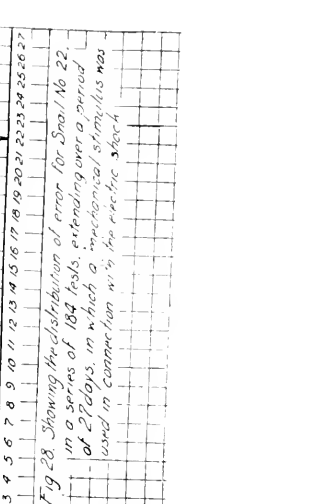 3 4 5 6 7 8 9 10 11 12 13 14 15 16 17 18 19 20 21 22 23 24 25 26 27
Fig 28. Showing the distribution of error for Snail No 22.
in a series of 184 tests, extending over a period
of 27 days, in which a mechanical stimulus was
used in connection with the electric shock